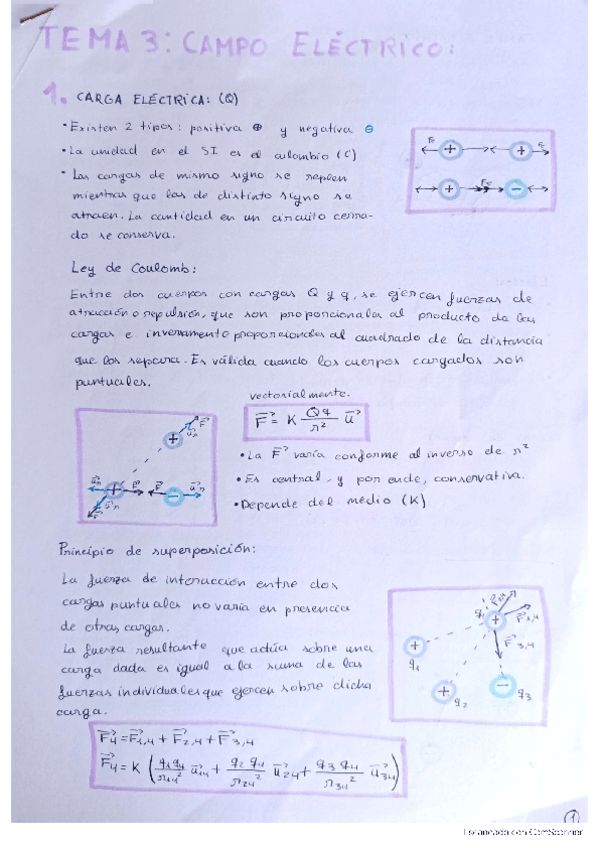 TEMA 3: CAMPO ELÉCTRICO:
1. CARGA ELÉCTRICA: (Q)
• Existen 2 tipos: positiva ⊕ y negativa ⊖
• La unidad en el SI es el culombio (C)
• Las cargas de mismo signo se repelen
mientras que las de distinto signo se
atraen. La cantidad en un circuito cerra-
do se conserva.
Ley de Coulomb:
Entre dos cuerpos con cargas Q y q, se ejercen fuerzas de
atracción o repulsión, que son proporcionales al producto de las
cargas e inversamente proporcionales al cuadrado de la distancia
que los separa. Es válida cuando los cuerpos cargados son
puntuales.
vectorialmente.
F⃗ = K Qq/r² u⃗
• La F⃗ varía conforme al inverso de r²
• Es central, y por ende, conservativa.
• Depende del medio (K)
Principio de superposición:
La fuerza de interacción entre dos
cargas puntuales no varía en presencia
de otras cargas.
La fuerza resultante que actúa sobre una
carga dada es igual a la suma de las
fuerzas individuales que ejercen sobre dicha
carga.
q1
q2
q3
F⃗3,4
F⃗4 = F⃗1,4 + F⃗2,4 + F⃗3,4
F⃗4 = K (q1q4/r14² u⃗14 + q2 q4/r24² u⃗24 + q3 q4/r34² u⃗34)
1
Escaneado con CamScanner